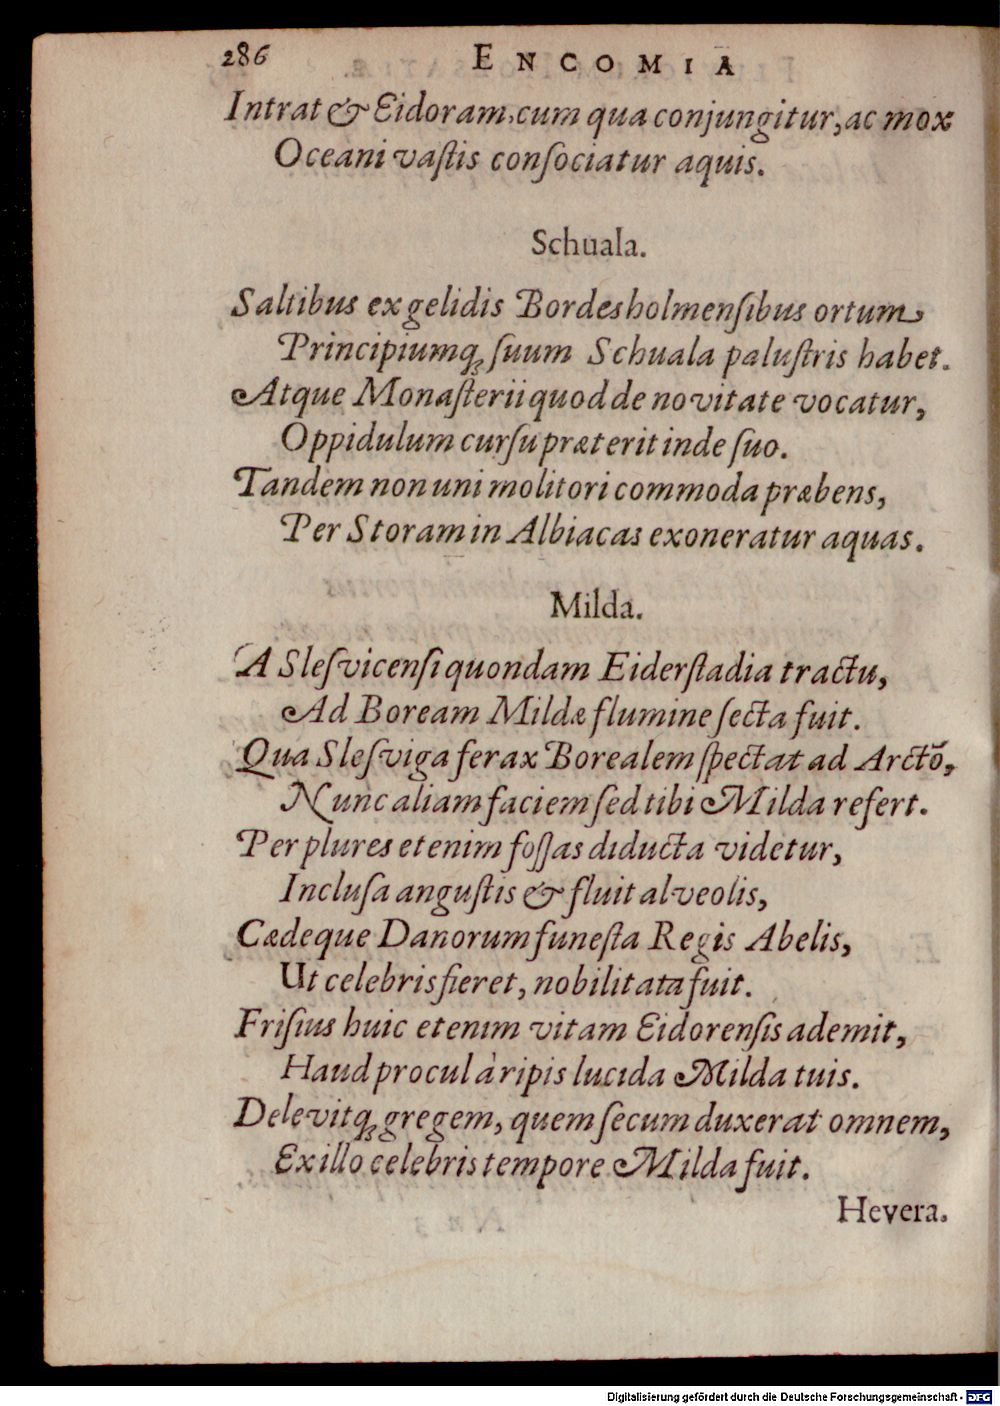 286 ENCOMIA
Intrat & Eidoram, cum qua conjungitur, ac mox
Oceani vaſtis conſociatur aquis.
Schuala.
Saltibus ex gelidis Bordesholmenſibus ortum
Principiumq́; ſuum Schuala paluſtris habet.
Atque Monaſterii quod de novitate vocatur,
Oppidulum curſu præterit inde ſuo.
Tandem non uni molitori commoda præbens,
Per Storam in Albiacas exoneratur aquas.
Milda.
A Sleſvicenſi quondam Eiderſtadia tractu,
Ad Boream Mildæ flumine ſecta fuit.
Qua Sleſviga ferax Borealem ſpectat ad Arctõ,
Nunc aliam faciem ſed tibi Milda refert.
Per plures etenim foſſas diducta videtur,
Incluſa anguſtis & fluit alveolis,
Cædeque Danorum funeſta Regis Abelis,
Ut celebris fieret, nobilitata fuit.
Friſius huic etenim vitam Eidorenſis ademit,
Haud procul à ripis lucida Milda tuis.
Delevitq́; gregem, quem ſecum duxerat omnem,
Ex illo celebris tempore Milda fuit.
Hevera.
Digitalisierung gefördert durch die Deutsche Forschungsgemeinschaft - DFG